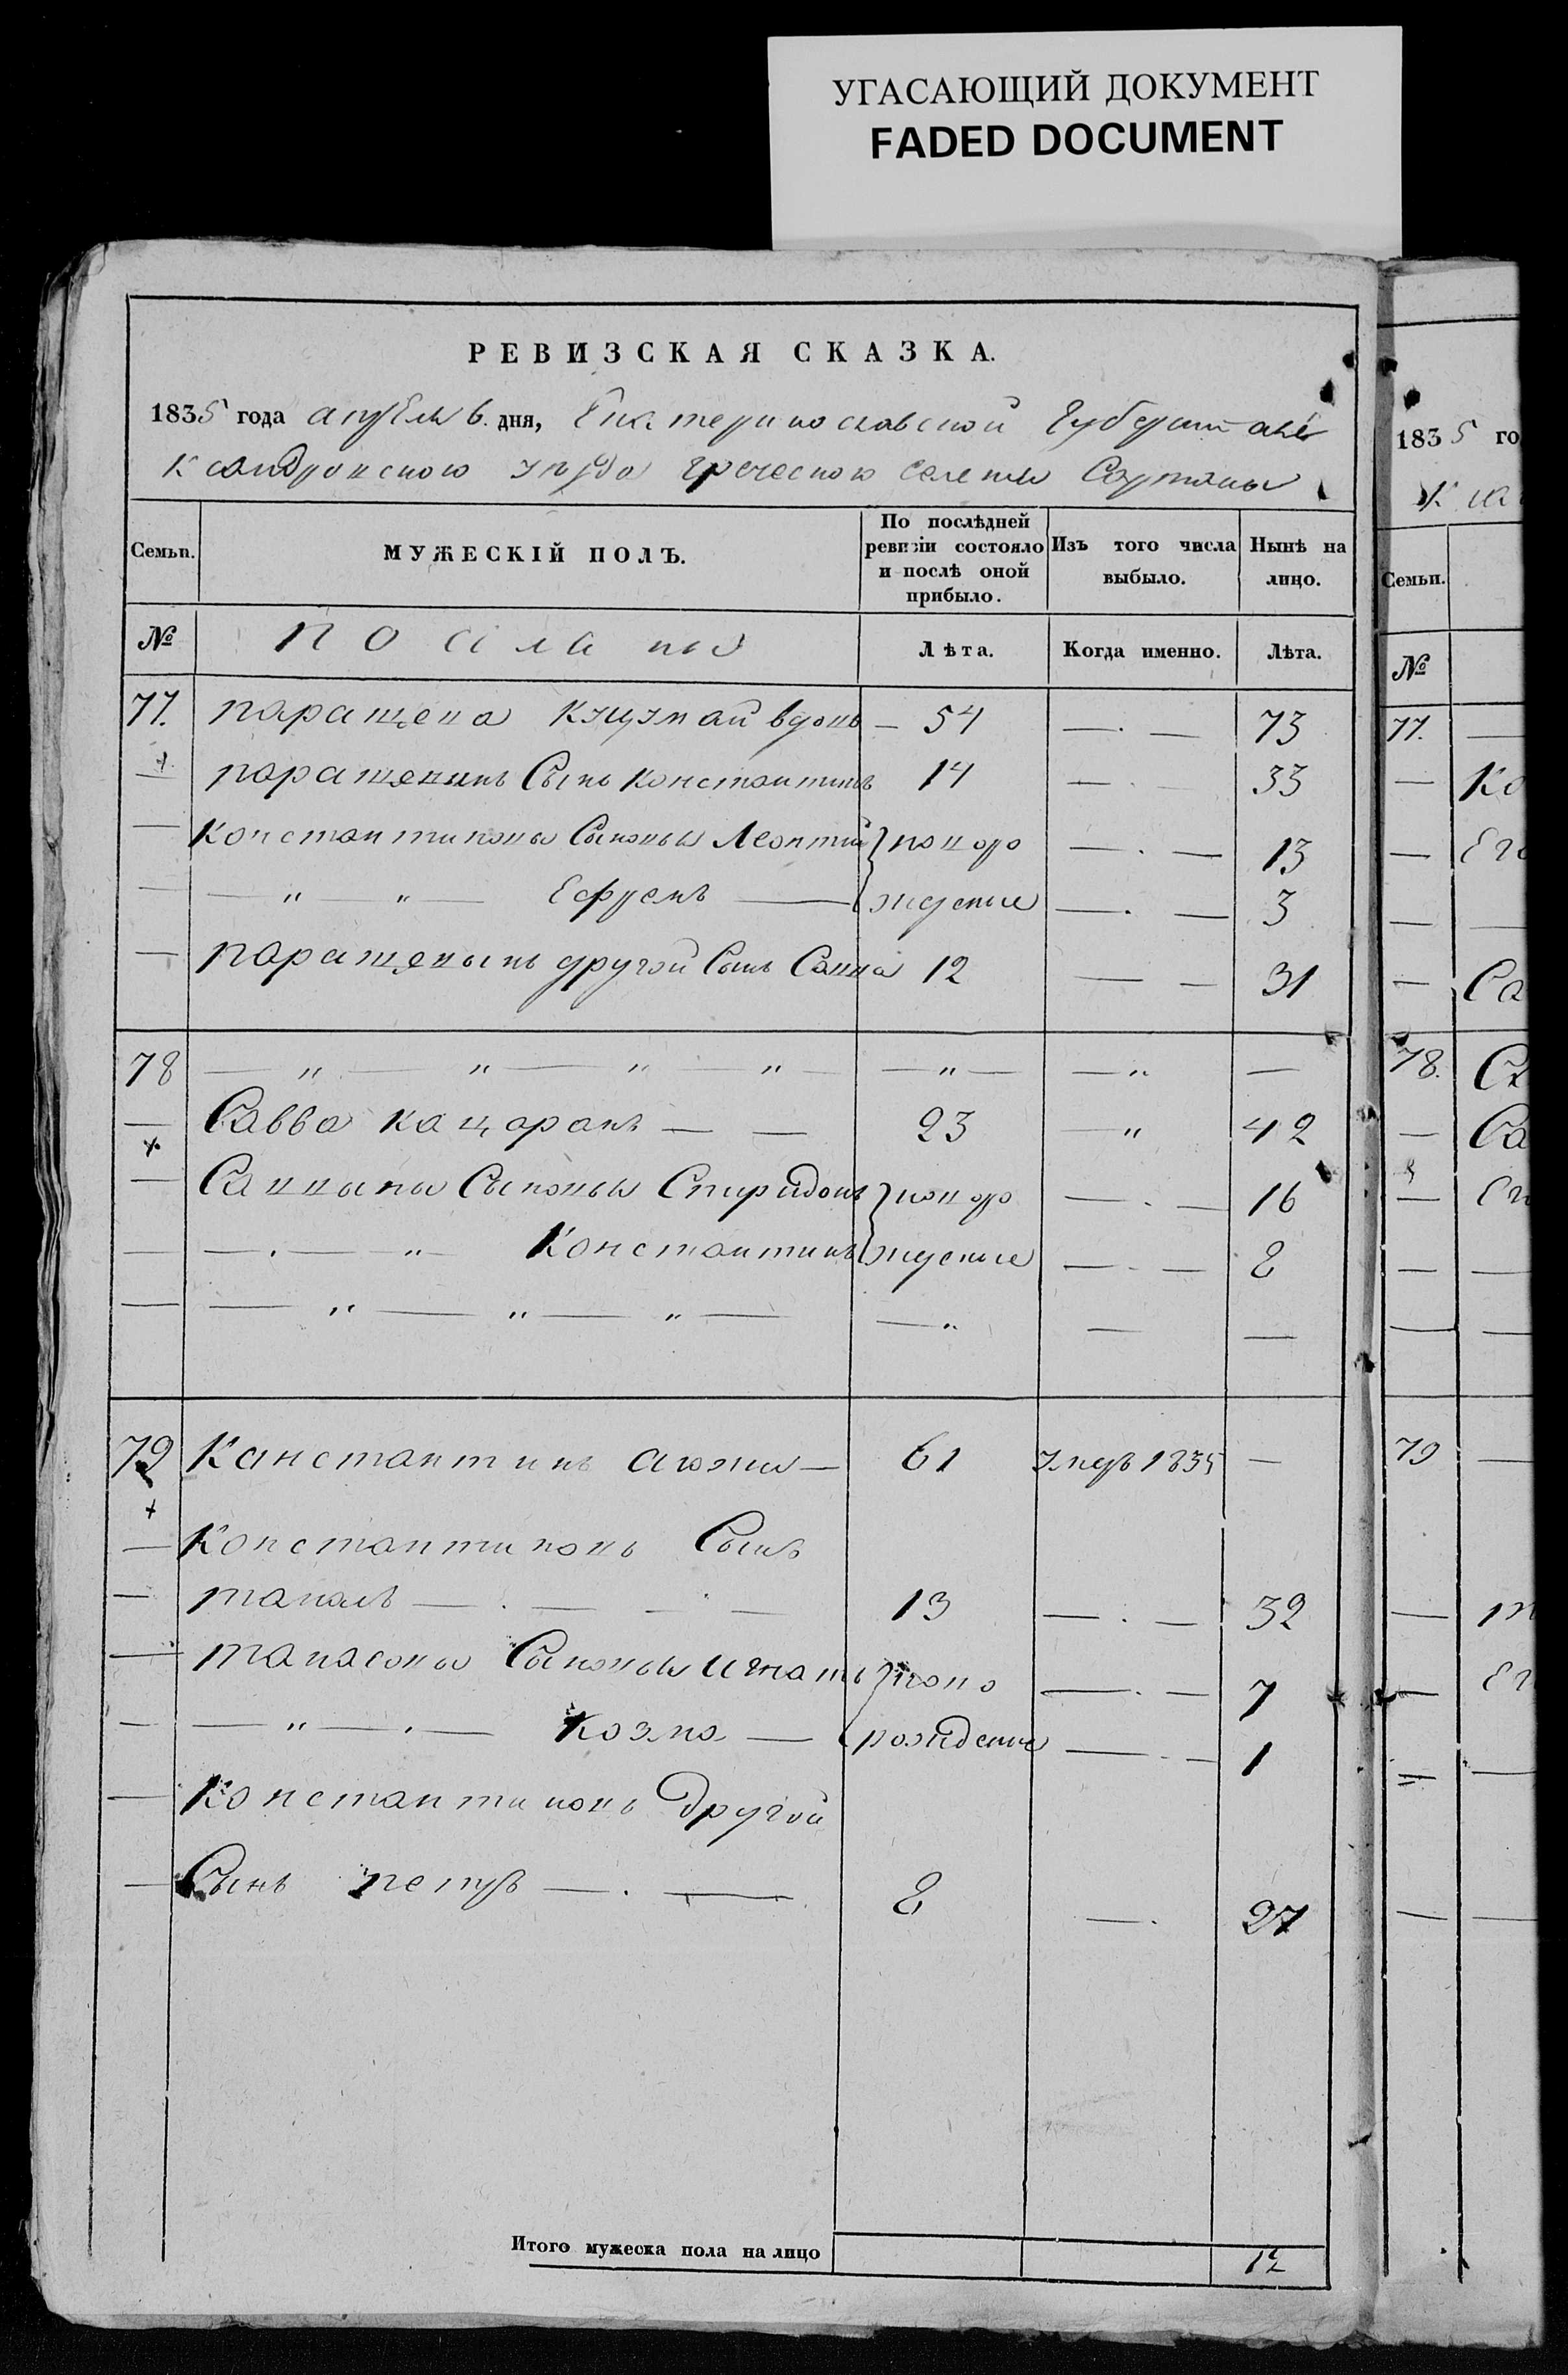 УГАСАЮЩИЙ ДОКУМЕНТ
FADED DOCUMENT
РЕВИЗСКАЯ СКАЗКА.
1835 года апреля 6. дня, Екатеринославской Губернии Але
ксандровского уезда греческого селения Сартаны
Семьи.
МУЖЕСКІЙ ПОЛЪ.
По послѣдней ревизіи состояло и послѣ оной прибыло.
Изъ того числа выбыло.
Нынѣ на лицо.
№
Лѣта.
Когда именно.
Лѣта.
77. паращева вдова — 54 — . — 73
— паращевинъ Сынъ Константинъ 14 — . — 33
— Константиновы Сыновья Леонтий } новоро — . — 13
— — " — " — Ефремъ — ждение — . — 3
— паращевынъ другой Сынъ Савва 12 — — 31
78 — " — " — " — " — — " — — " —
— Савва кацаракъ — — 23 — " 42
— Саввыны Сыновья Спиридонъ } новоро — . — 16
— — . — " — Константинъ ждение — . — 8
— — " — " — " — — " — —
79 Канстантинъ 61 умеръ 1835 —
— Константиновъ Сынъ
— танасъ — . — . — 13 — . — 32
— танасовы Сыновья игнатъ } ново — . — 7
— — " — . — Козма — рождение — . — 1
— Константиновъ другой
— Сынъ петръ — . — 8 — . 27
Итого мужеска пола на лицо 12
1835 го
Семьи.
№
77. —
— Ко
— Его
— —
— Са
78.
— Са
— Сп
— —
— —
79 —
—
— Ег
— —
— —